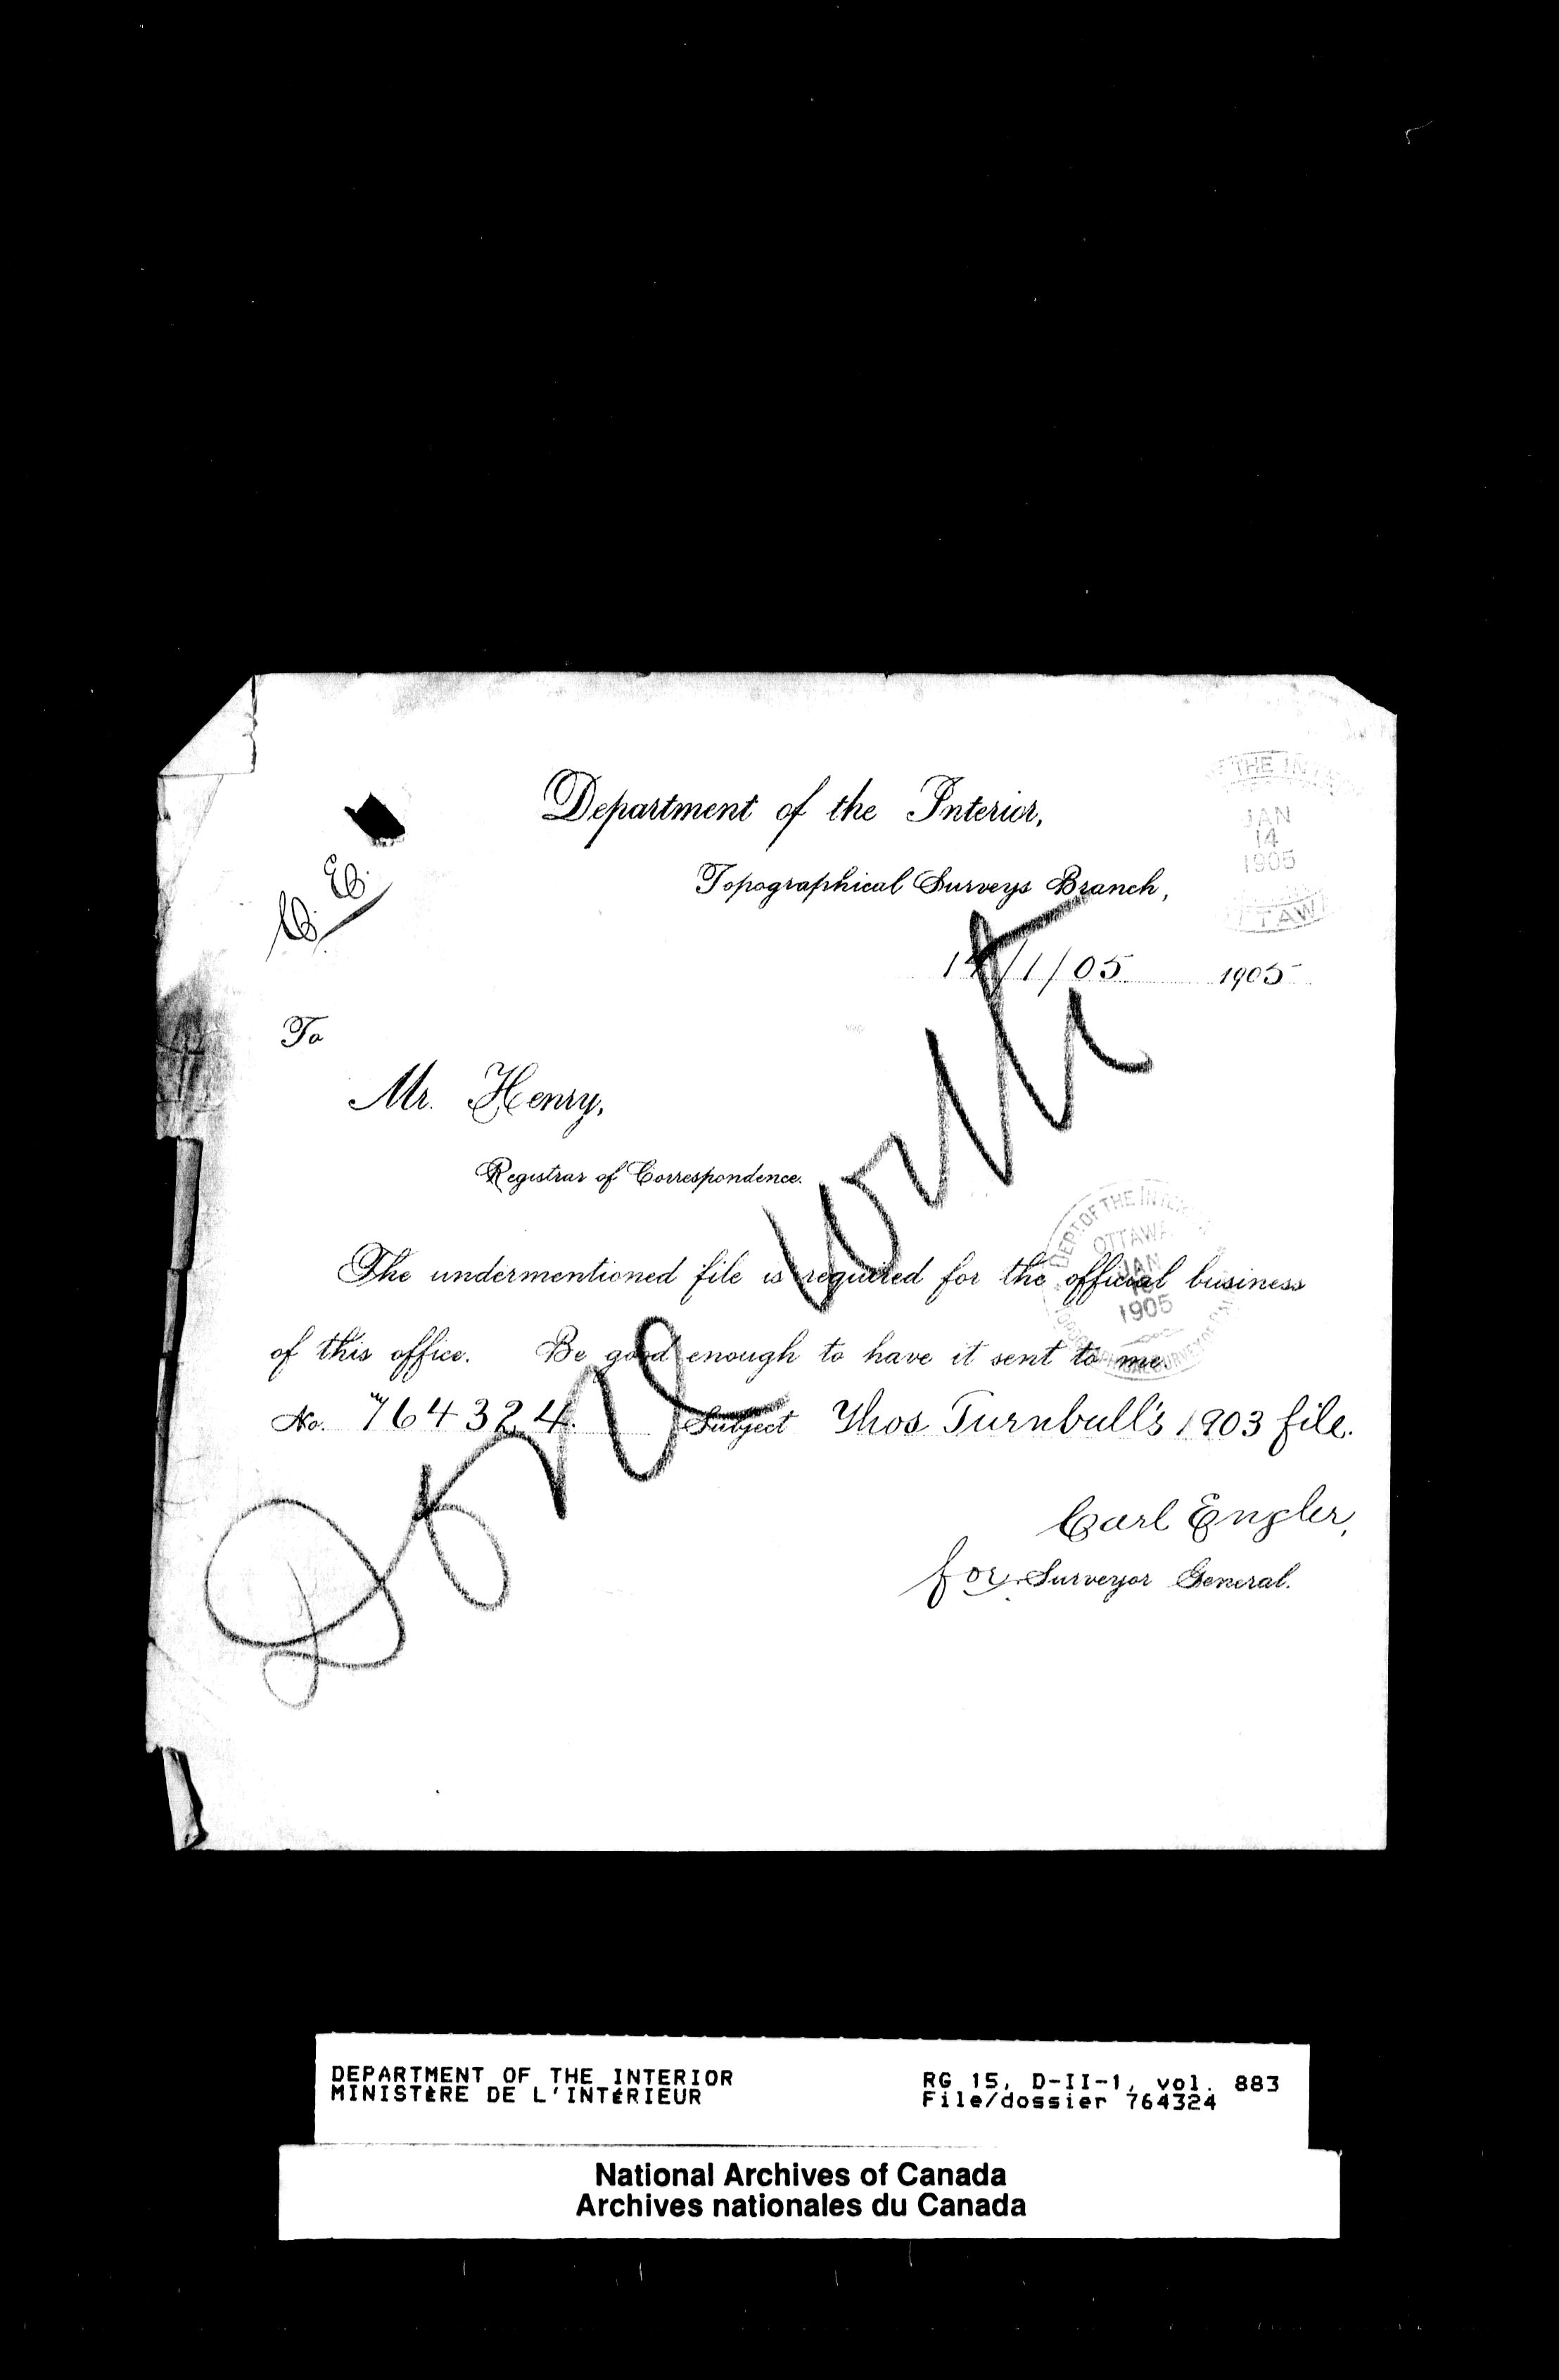 Department of the Interior,
Topographical Surveys Branch,
THE IN
JAN
14
1905
TTAW
C. E.
14/1/05 1905
To
Mr. Henry,
Registrar of Correspondence.
The undermentioned file is required for the official business
of this office. Be good enough to have it sent to me.
DEPT. OF THE INTER
OTTAWA
JAN
1905
No. 764324. Subject Thos. Turnbull's 1903 file.
Carl Engler,
for Surveyor General.
Done with
DEPARTMENT OF THE INTERIOR
MINISTÈRE DE L'INTÉRIEUR
RG 15, D-II-1, vol. 883
File/dossier 764324
National Archives of Canada
Archives nationales du Canada